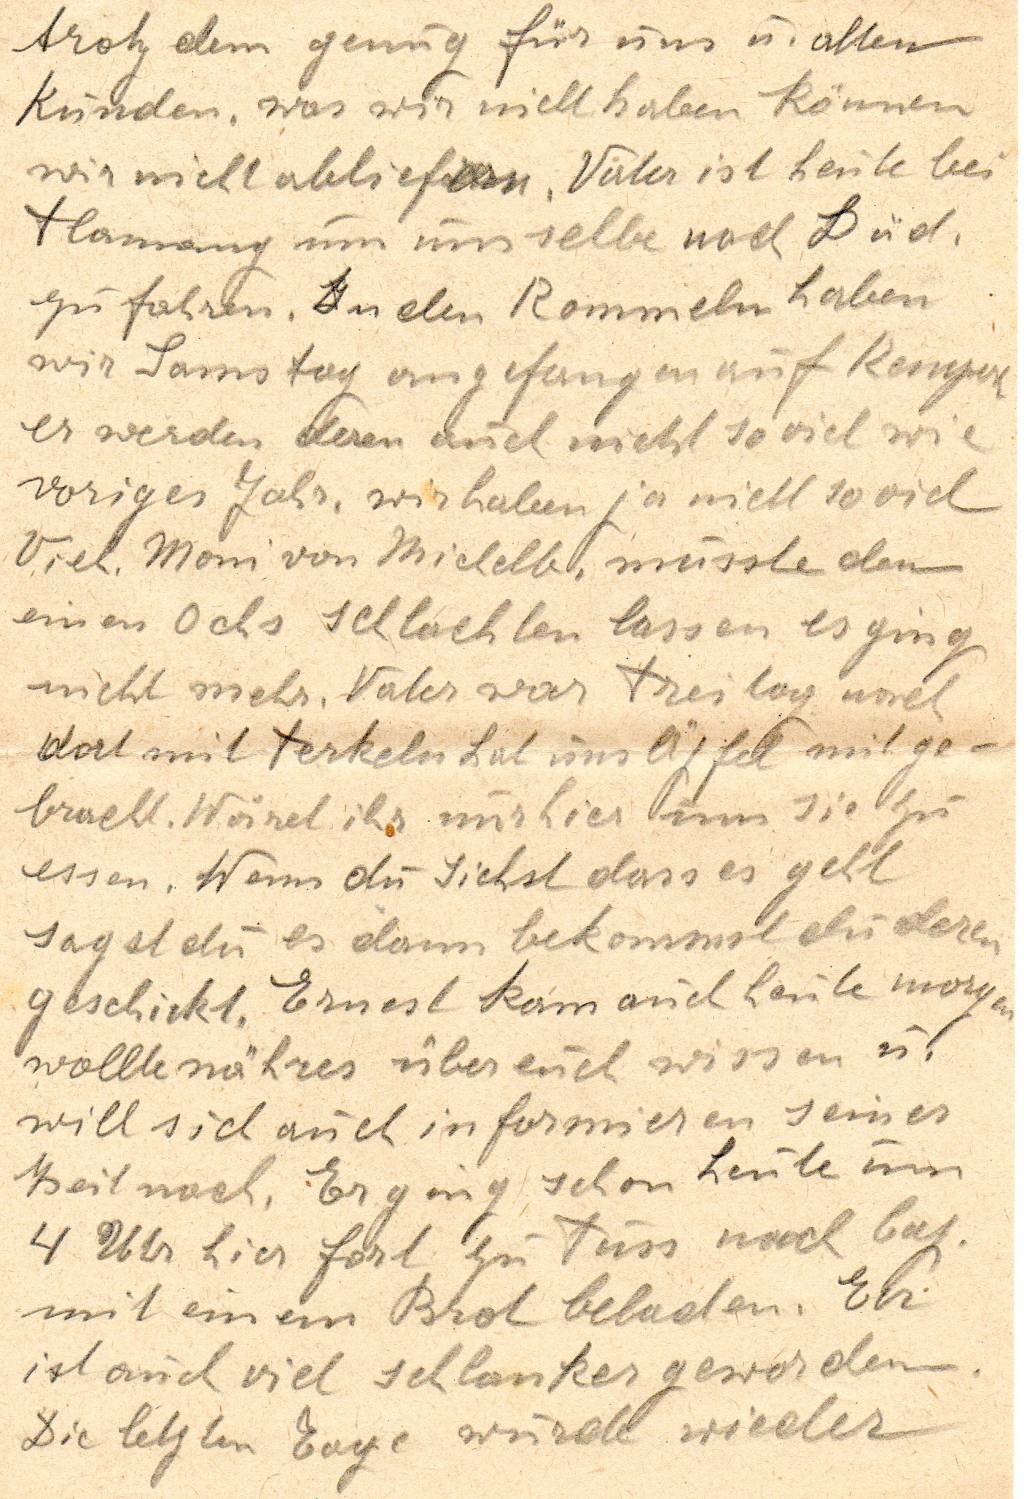 trotz dem genug für uns u. allen
Kunden, was wir nicht haben können
wir nicht abliefern. Vater ist heute bei
Flamang um um selbe nach Düd.
zu fahren. In den Rommeln haben
wir Samstag angefangen auf
er werden deren auch nicht so viel wie
voriges Jahr, wir haben ja nicht so viel
Vieh. Moni von Michelb. musste den
einen Ochs schlachten lassen es ging
nicht mehr. Vater war Freitag noch
dort mit Ferkeln hat uns Äpfel mit ge-
bracht. Wäret ihr nur hier um sie zu
essen. Wenn du siehst dass es geht
sagst du es dann bekommst du deren
geschickt. Ernest kam auch heute morgen
wollte nähres über euch wissen u.
will sich auch informieren seiner
Zeit nach. Er ging schon heute um
4 Uhr hier fort zu Fuss nach
mit einem Brot beladen. Er
ist auch viel schlanker geworden.
Die letzten Tage wurde wieder